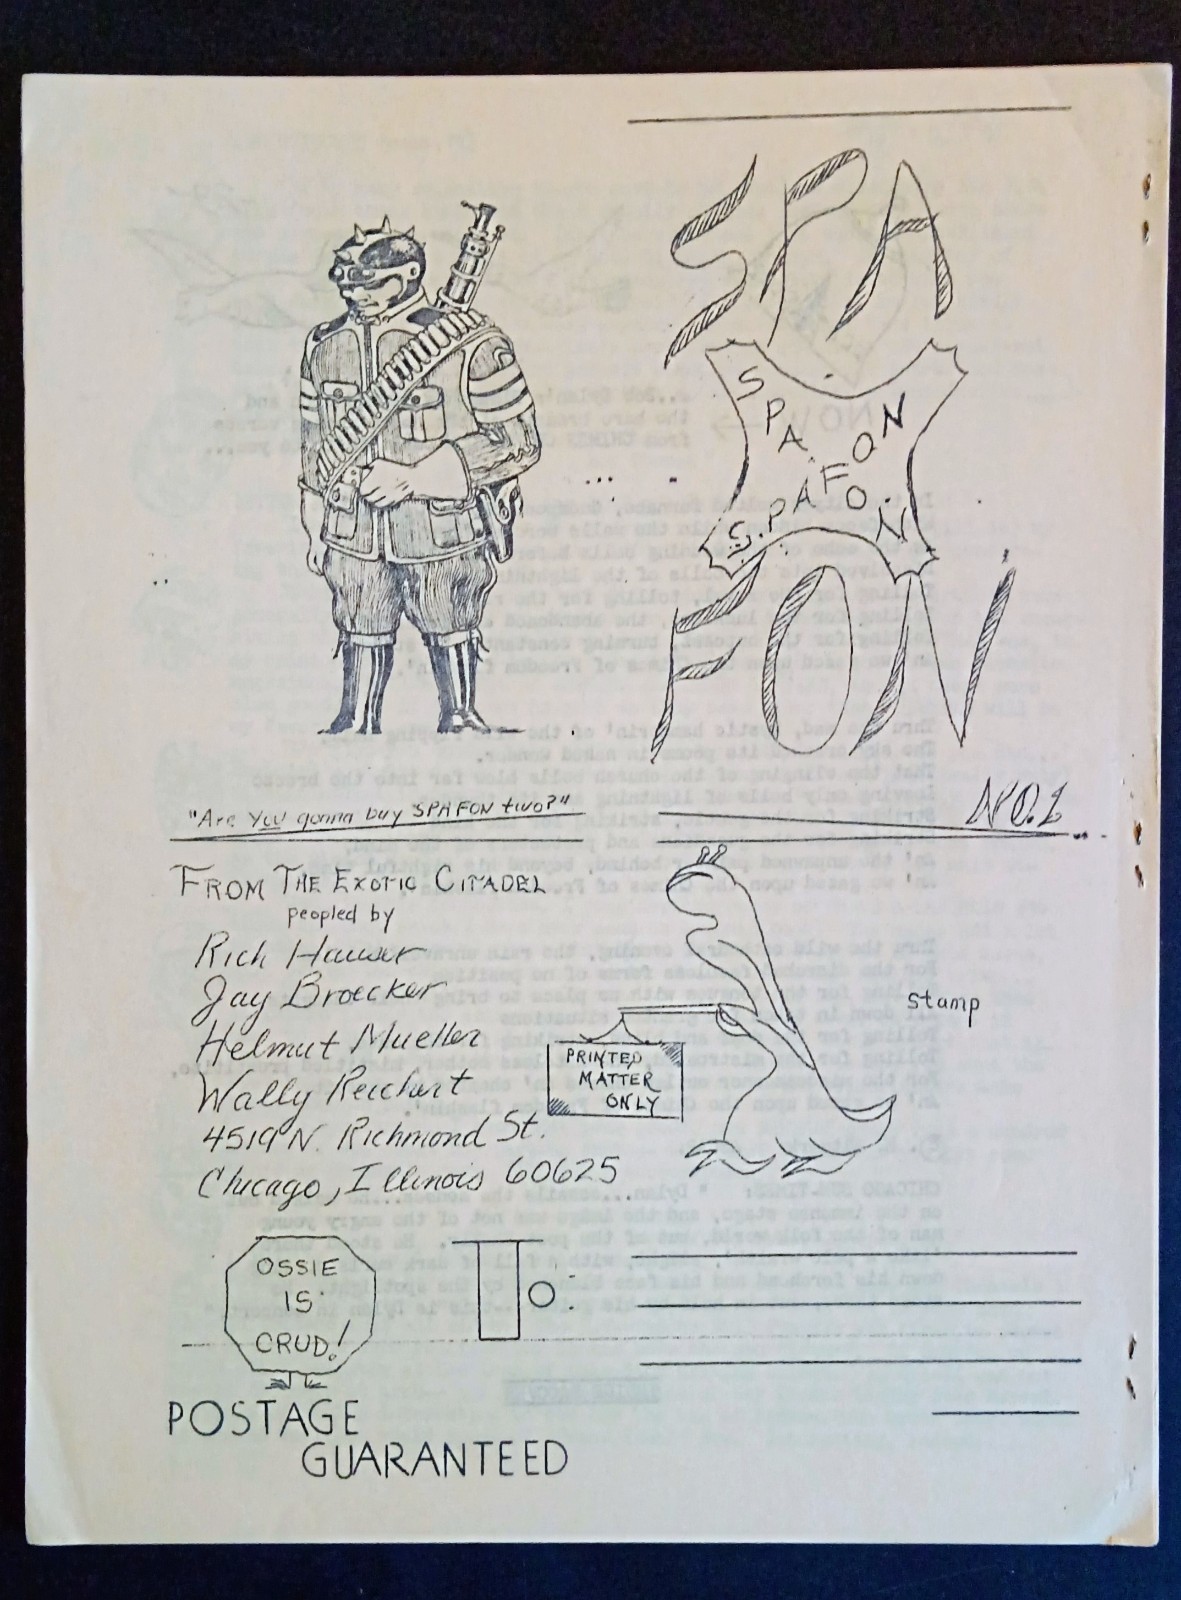 SPA
SPAFON
SPAFON
FON
NO.1
"Are You gonna buy SPAFON two?"
FROM THE EXOTIC CITADEL
peopled by
Rich Hauser
Jay Broecker
Helmut Mueller
Wally Reichert
4519 N. Richmond St.
Chicago, Illinois 60625
PRINTED
MATTER
ONLY
Stamp
OSSIE
IS
CRUD!
To:
POSTAGE
GUARANTEED